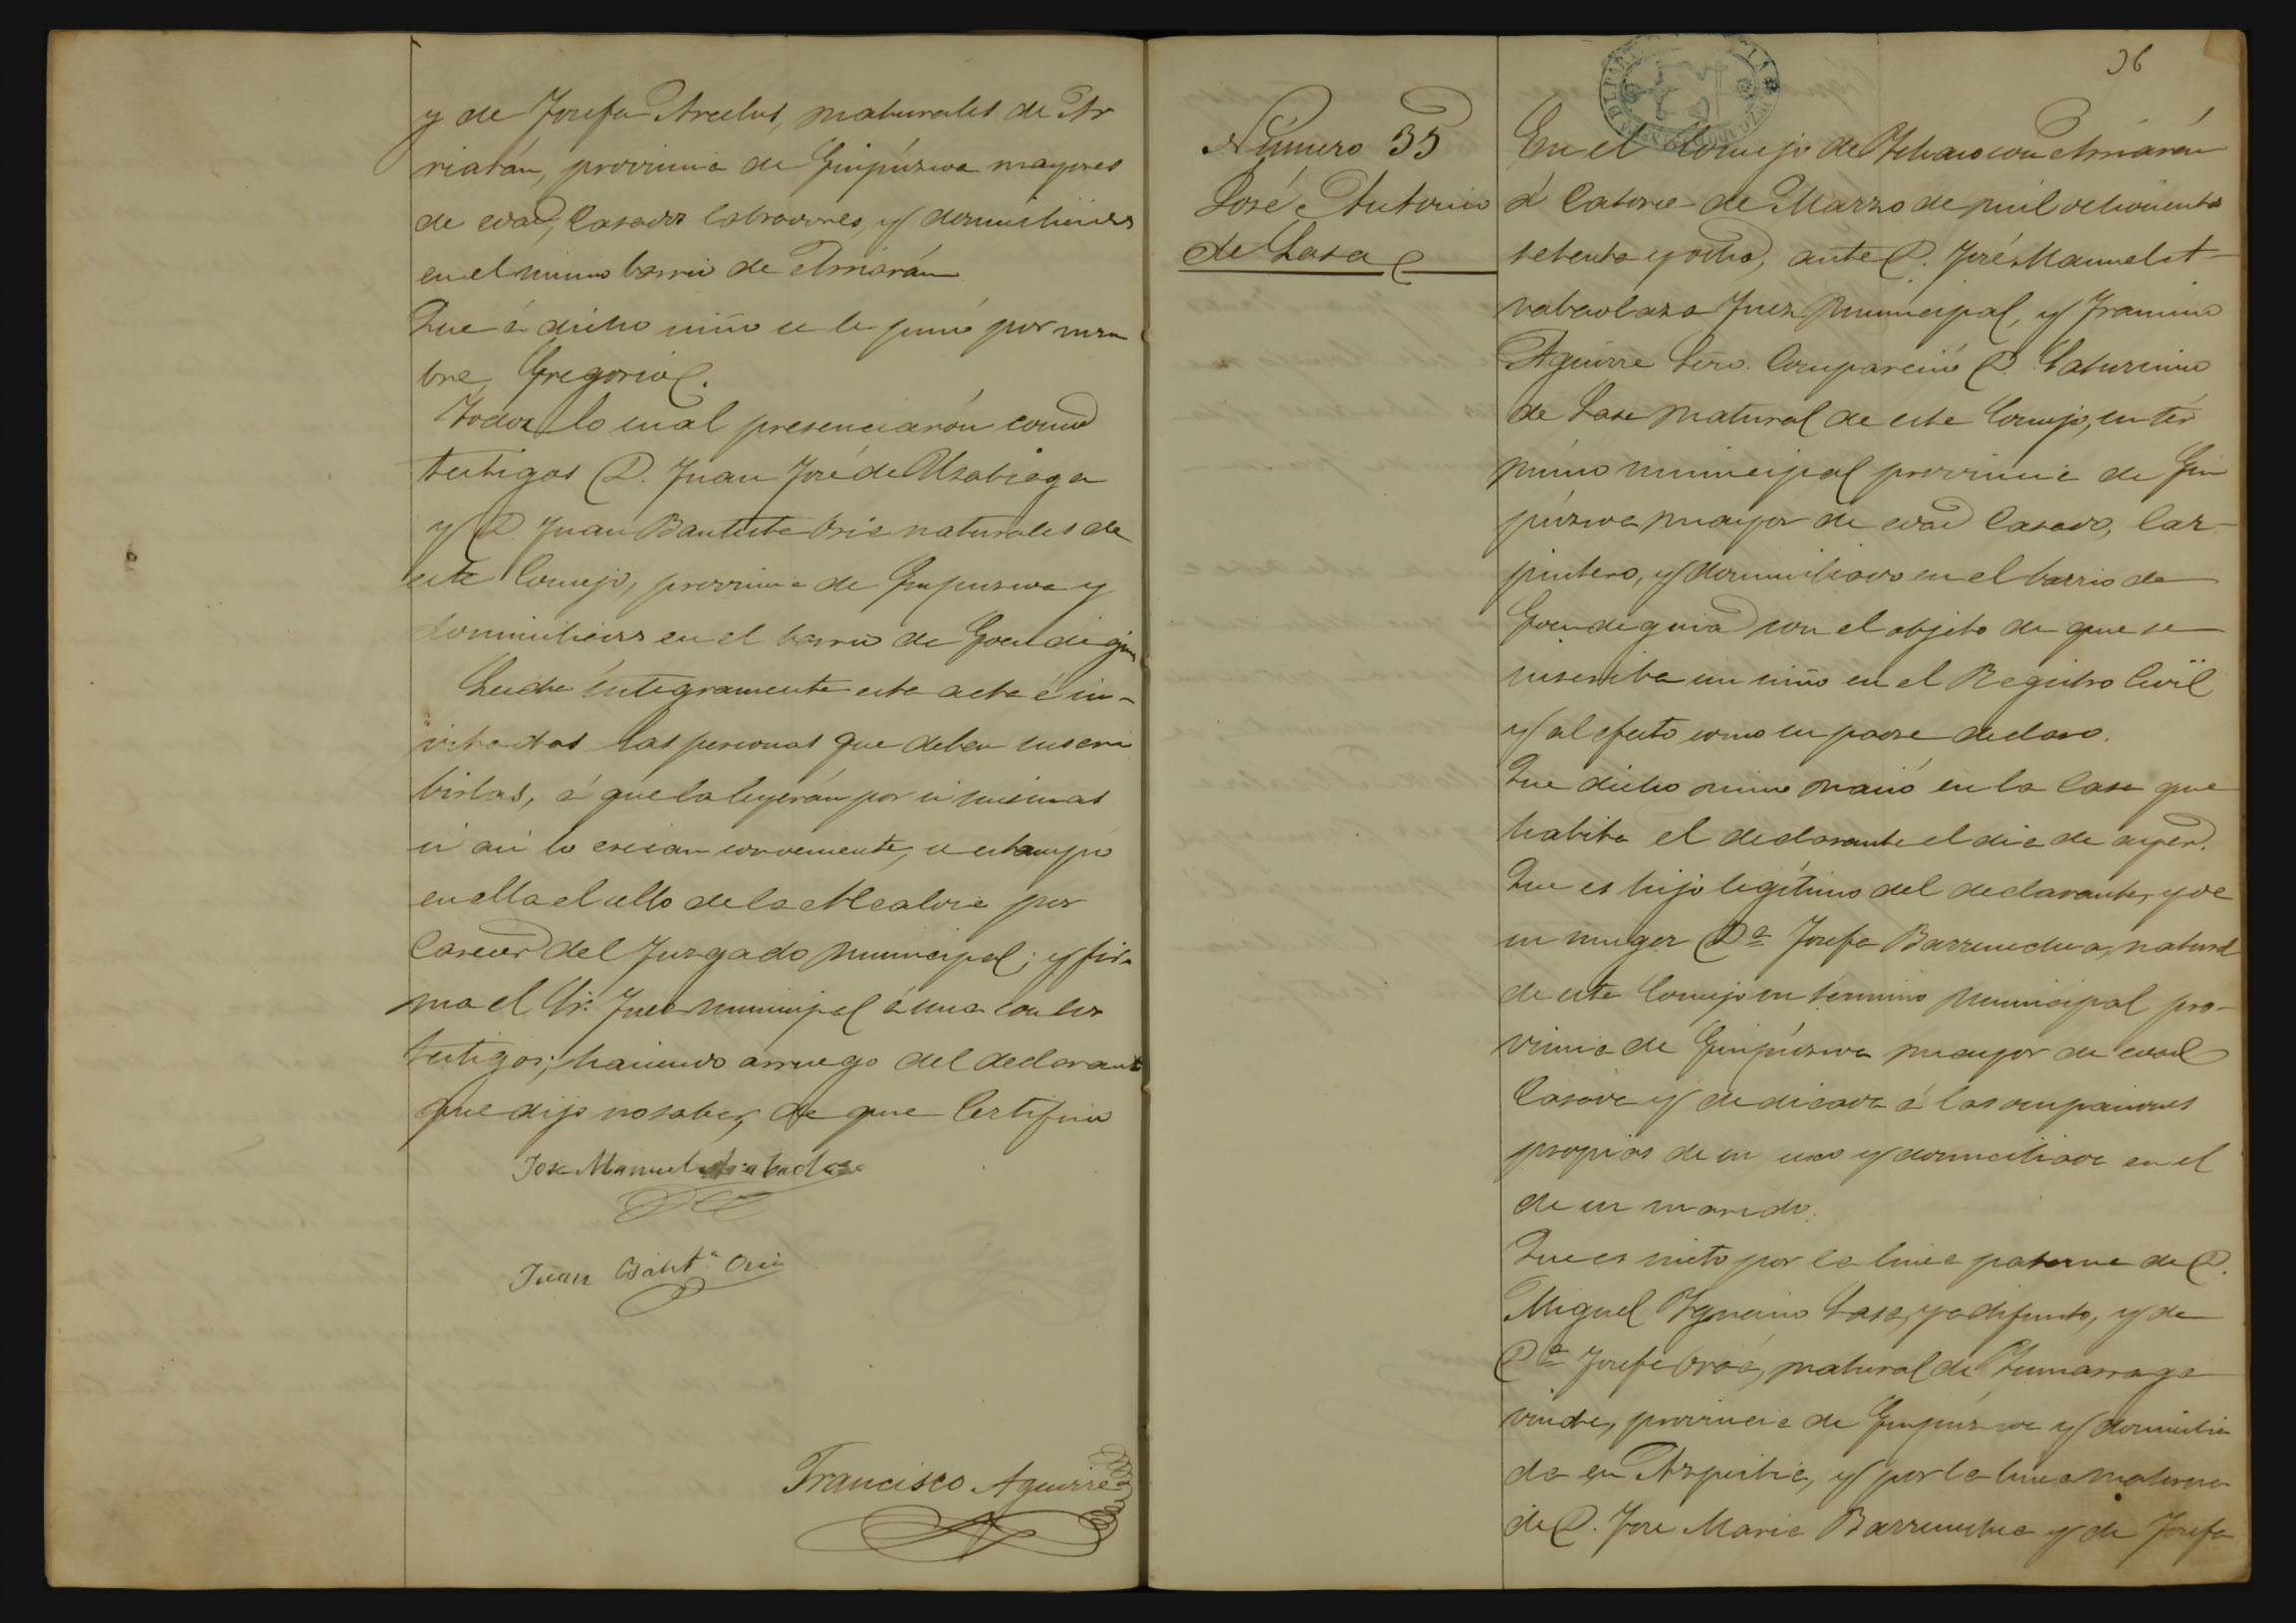 y de Josefa Arcelus, naturales de Ar
riarán, provincia de Guipúzcoa mayores
de edad, Casados labradores, y domiciliados
en el mismo barrio de Arriarán
Que á dicho niño se le puso por nom
bre, Gregorio.
Todo lo cual presenciarón como
testigos D. Juan José de Usabiaga
y D. Juan Bautista Oria naturales de
este Concejo, provincia de Guipuzcoa y
domiciliados en el barrio de Goendegui
Leida integramente esta acta é in-
vitadas las personas que deben suscri
birlas, á que la leyerán por si mismas
si asi lo creian conveniente, se estampó
en ella el sello de la Alcaldia por
Carecer del Juzgado Municipal; y fir
ma el Sr. Juez municipal á una con los
testigos; haciendo arruego del declarante
que dijo no saber, de que Certifico
Jose Manuel Arabaolaza
Juan Baut.ª Oria
Francisco Aguirre
36
Número 35
José Antonio
de Lasa
En el Concejo de Ichaso con Arriarán
á Catorce de Marzo de mil ochocientos
setenta y ocho, ante D. José Manuel A-
rabaolaza Juez Municipal, y Francisco
Aguirre Scrio. Compareció D. Saturnino
de Lasa natural de este Concejo, su tér
mino municipal provincia de Gui
púzcoa mayor de edad Casado, Car-
pintero, y domiciliado en el barrio de
Goendeguia con el objeto de que se
inscriba un niño en el Registro Civil
y al efecto como su padre declaro.
Que dicho niño nació en la Casa que
habita el declarante el dia de ayer.
Que es hijo legítimo del declarante, y de
su muger D.ª Josefa Barrenechea, natural
de este Concejo su término Municipal pro-
vincia de Guipúzcoa mayor de edad
Casada y dedicada á las ocupaciones
propias de su sexo y domiciliada en el
de su marido.
Que es nieto por la linea paterna de D.
Miguel Ygnacio Lasa, ya difunto, y de
D.ª Josefa Oria, natural de Zumarraga
viuda, provincia de Guipúzcoa y domicilia
da en Azpeitia, y por la linea materna
de D. Jose Maria Barrenechea y de Josefa